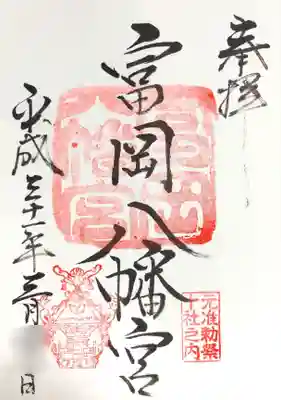 奉拝
富岡八幡宮
元准勅祭
十社之内
平成三十一年三月 日